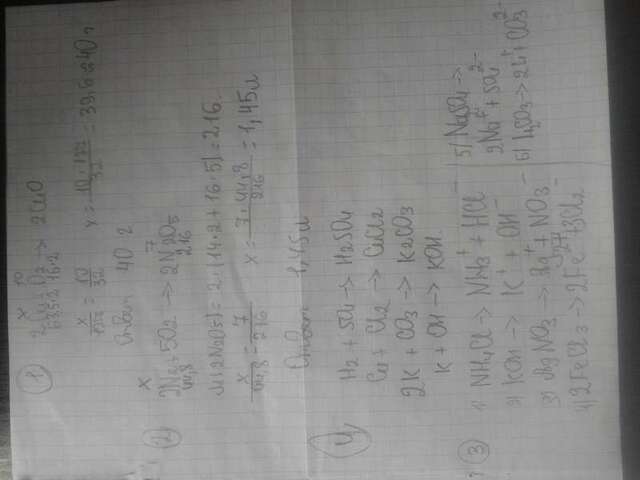 1
x 10
2Cu + O2 → 2CuO
63,5·2 16·2
x/127 = 10/32 x = 10·127/32 = 39,6 ≈ 40 г
Ответ 40 г
2
x 7
2N2 + 5O2 → 2N2O5
44,8 216
M(2N2O5) = 2·(14·2+16·5) = 216.
x/44,8 = 7/216 x = 7·44,8/216 = 1,45 л
Ответ 1,45 л
4
H2 + SO4 → H2SO4
Cu + Cl2 → CuCl2
2K + CO3 → K2CO3
K + OH → KOH.
3
1) NH4Cl → NH3+ + HCl−
2) KOH → K+ + OH−
3) AgNO3 → Ag+ + NO3−
4) 2FeCl3 → 2Fe
5) Na2SO4 →
2Na+ + SO4 2−
6) Li2CO3 → 2Li+ + CO3 2−